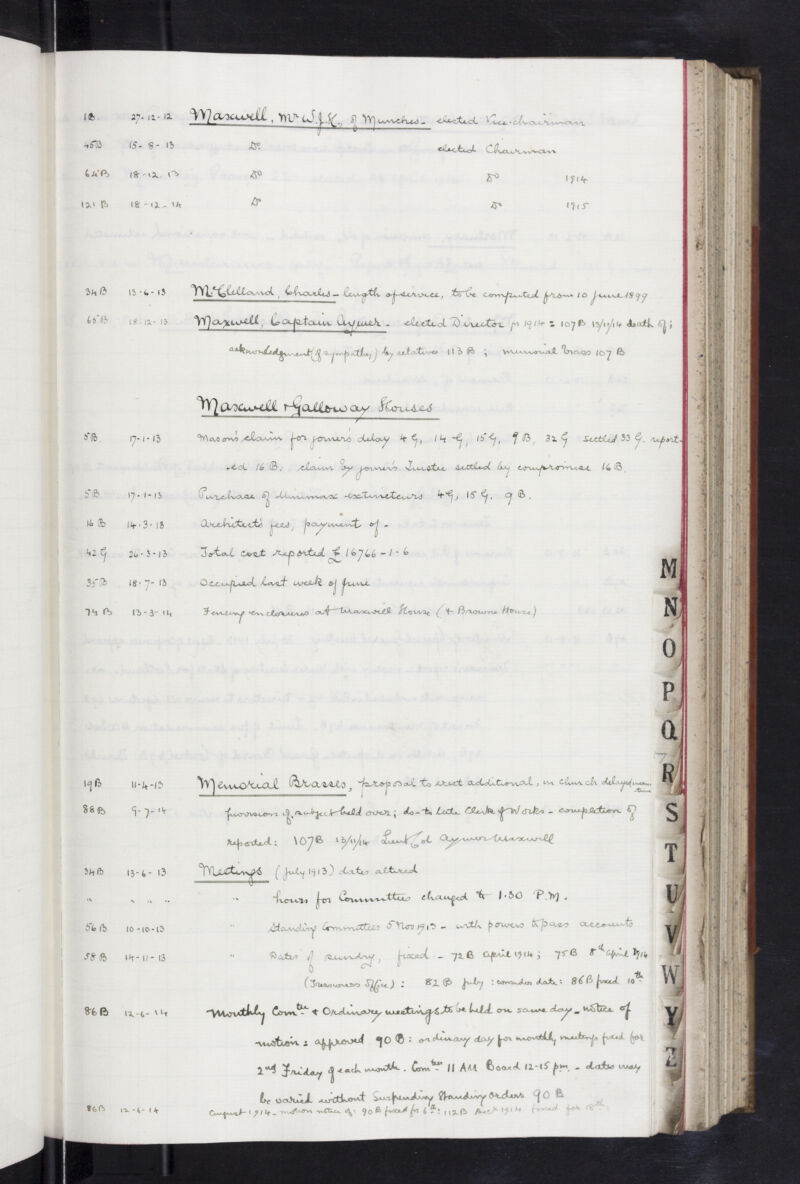 1B 27-12-12 Maxwell, Mr W.J.H., of Munches - elected Vice-chairman
45B 15-8-13 Do elected Chairman
64B 18-12-13 Do Do 1914
121B 18-12-14 Do Do 1915
34B 13-6-13 McClelland, Charles - length of service, to be computed from 10 June 1899
65B 18-12-13 Maxwell, Captain Aymer - elected Director for 1914: 107B 13/11/14 death of;
acknowledgment (of sympathy) by relatives 113B; memorial brass 107B
Maxwell & Galloway Houses
5B. 17-1-13 Mason's claim for joiner's delay 4G, 14G, 15G, 9B, 32G settled 33G. report-
-ed 16B: claim by joiner's Trustee settled by compromise 16B.
5B 17-1-13 Purchase of Minimax extincteurs 4G, 15G. 9B.
16B 14-3-13 Architect's fees, payment of -
42G 26-3-13 Total cost reported £16766-1-6
35B 18-7-13 Occupied last week of June
74B 13-3-14 Fencing enclosures at Maxwell House (& Browne House)
19B 11-4-13 Memorial Brasses, proposal to erect additional, in Church delayed
88B 9-7-14 provision of, subject held over; do - to late Clerk of Works - completion of
reported: 107B 13/11/14 Lieut Col Aymer Maxwell
34B 13-6-13 Meetings (July 1913) dates altered
" " " " " hours for Committees changed to 1.30 P.M.
56B 10-10-13 " Standing Committees 5 Nov 1913 - with powers to pass accounts
58B 14-11-13 " Dates of sundry, fixed - 72B April 1914; 75B 8th April 1914
(Treasurer's Office): 82B July: consider date: 86B fixed 10th
86B 12-6-14 Monthly Comtee & Ordinary meetings to be held on same day - notice of
motion: approved 90B: ordinary day for monthly meetings fixed for
2nd Friday of each month. Comtees 11 AM Board 12-15 pm. - dates may
be varied without Suspending Standing Orders 90B
86B 12-6-14 August 1914 - motion notice of: 90B fixed for 6th: 112B Decr 1914 fixed for 18th:
M
N
O
P
Q
R
S
T
U
V
W
Y
Z